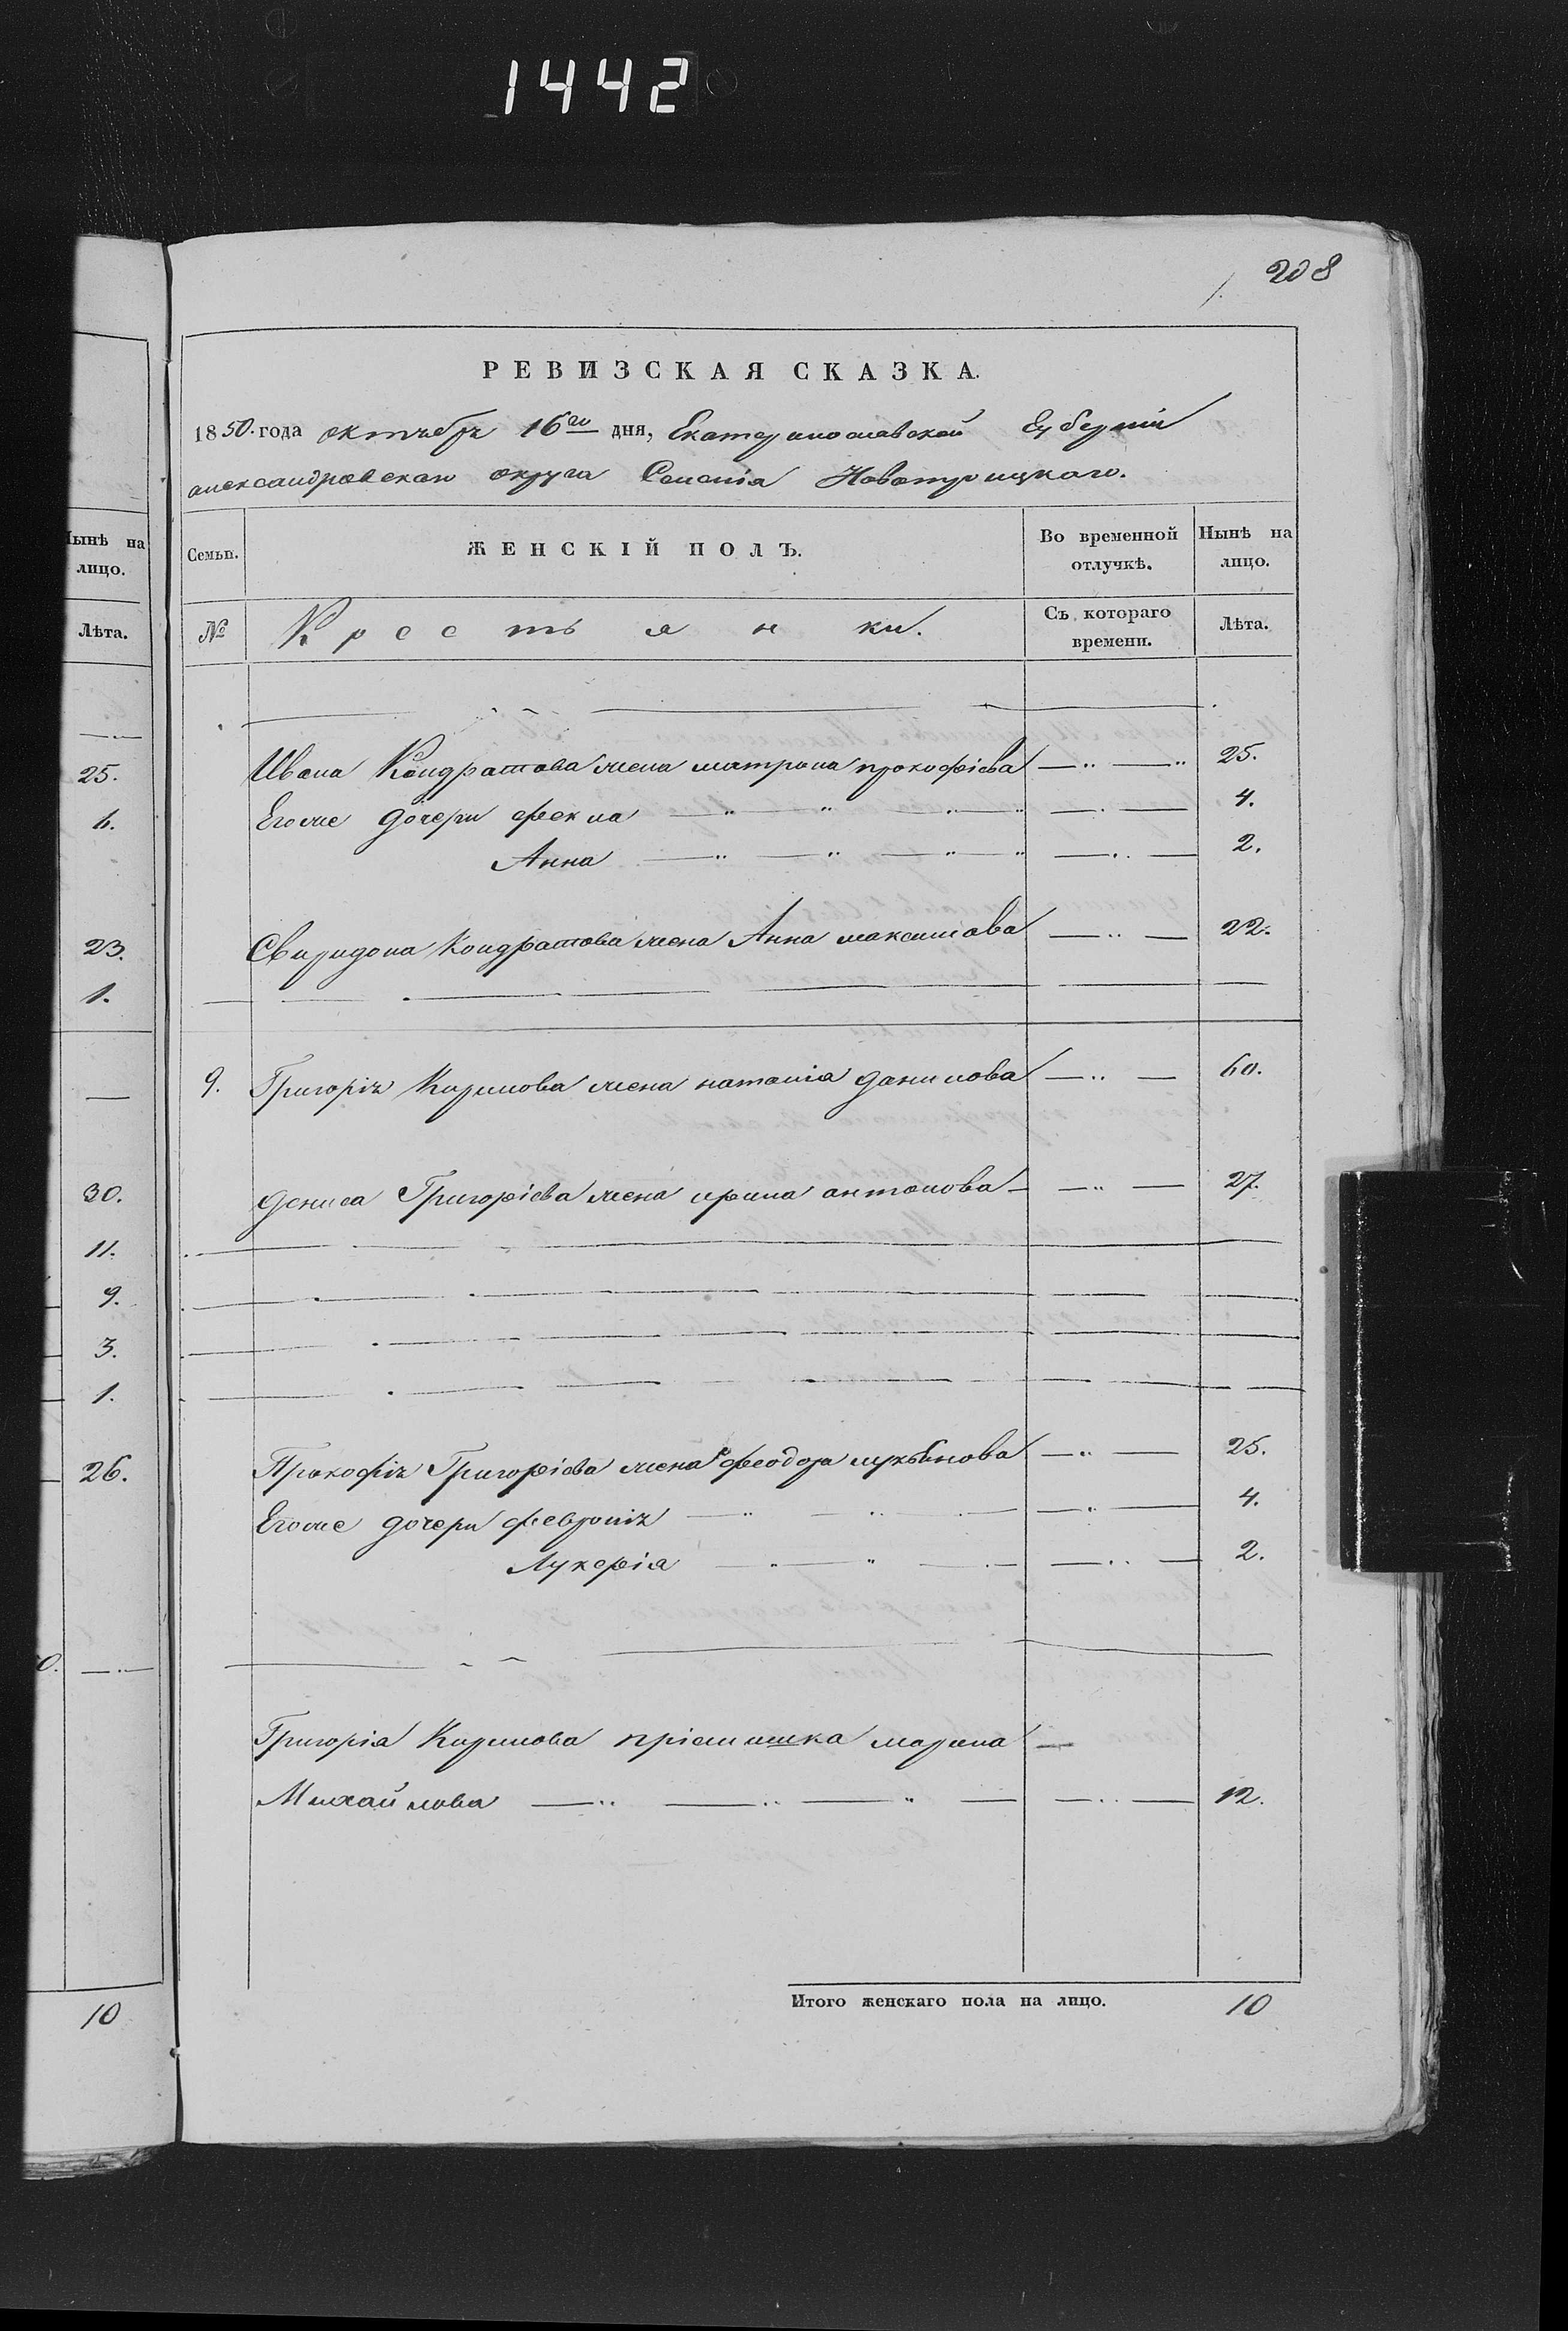 1442
208
РЕВИЗСКАЯ СКАЗКА.
1850. года октября 16го дня, Екатеринославской Губерніи
александровскаго округа Селенія Новотроицкаго.
Нынѣ на
лицо.
Лѣта.
25.
23.
1.
30.
11.
9.
3.
1.
26.
10
Семьи. ЖЕНСКІЙ ПОЛЪ. Во временной отлучкѣ. Нынѣ на лицо.
№ Крестьянки. Съ котораго времени. Лѣта.
Ивана Кондратова жена матрона прокофіева 25.
Егоже дочери фекла 4.
Анна 2.
Свиридона Кондратова жена Анна максимова 22.
9. Григорія Кирилова жена наталія данилова 60.
дениса Григоріева жена ирина антонова 27.
Прокофія Григоріева жена феодора лукьянова 25.
Егоже дочери февронія 4.
Лукерія 2.
Григорія Кирилова пріемишка марина
Михайлова 12.
Итого женскаго пола на лицо. 10